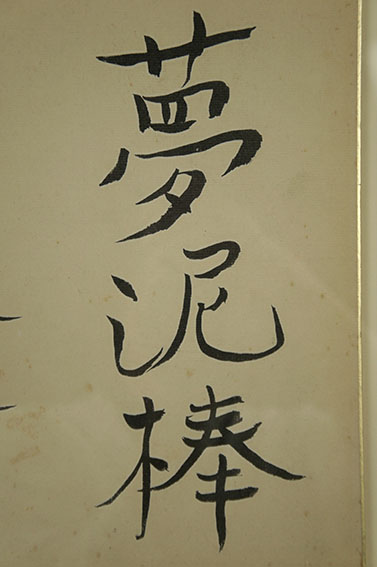 夢泥棒